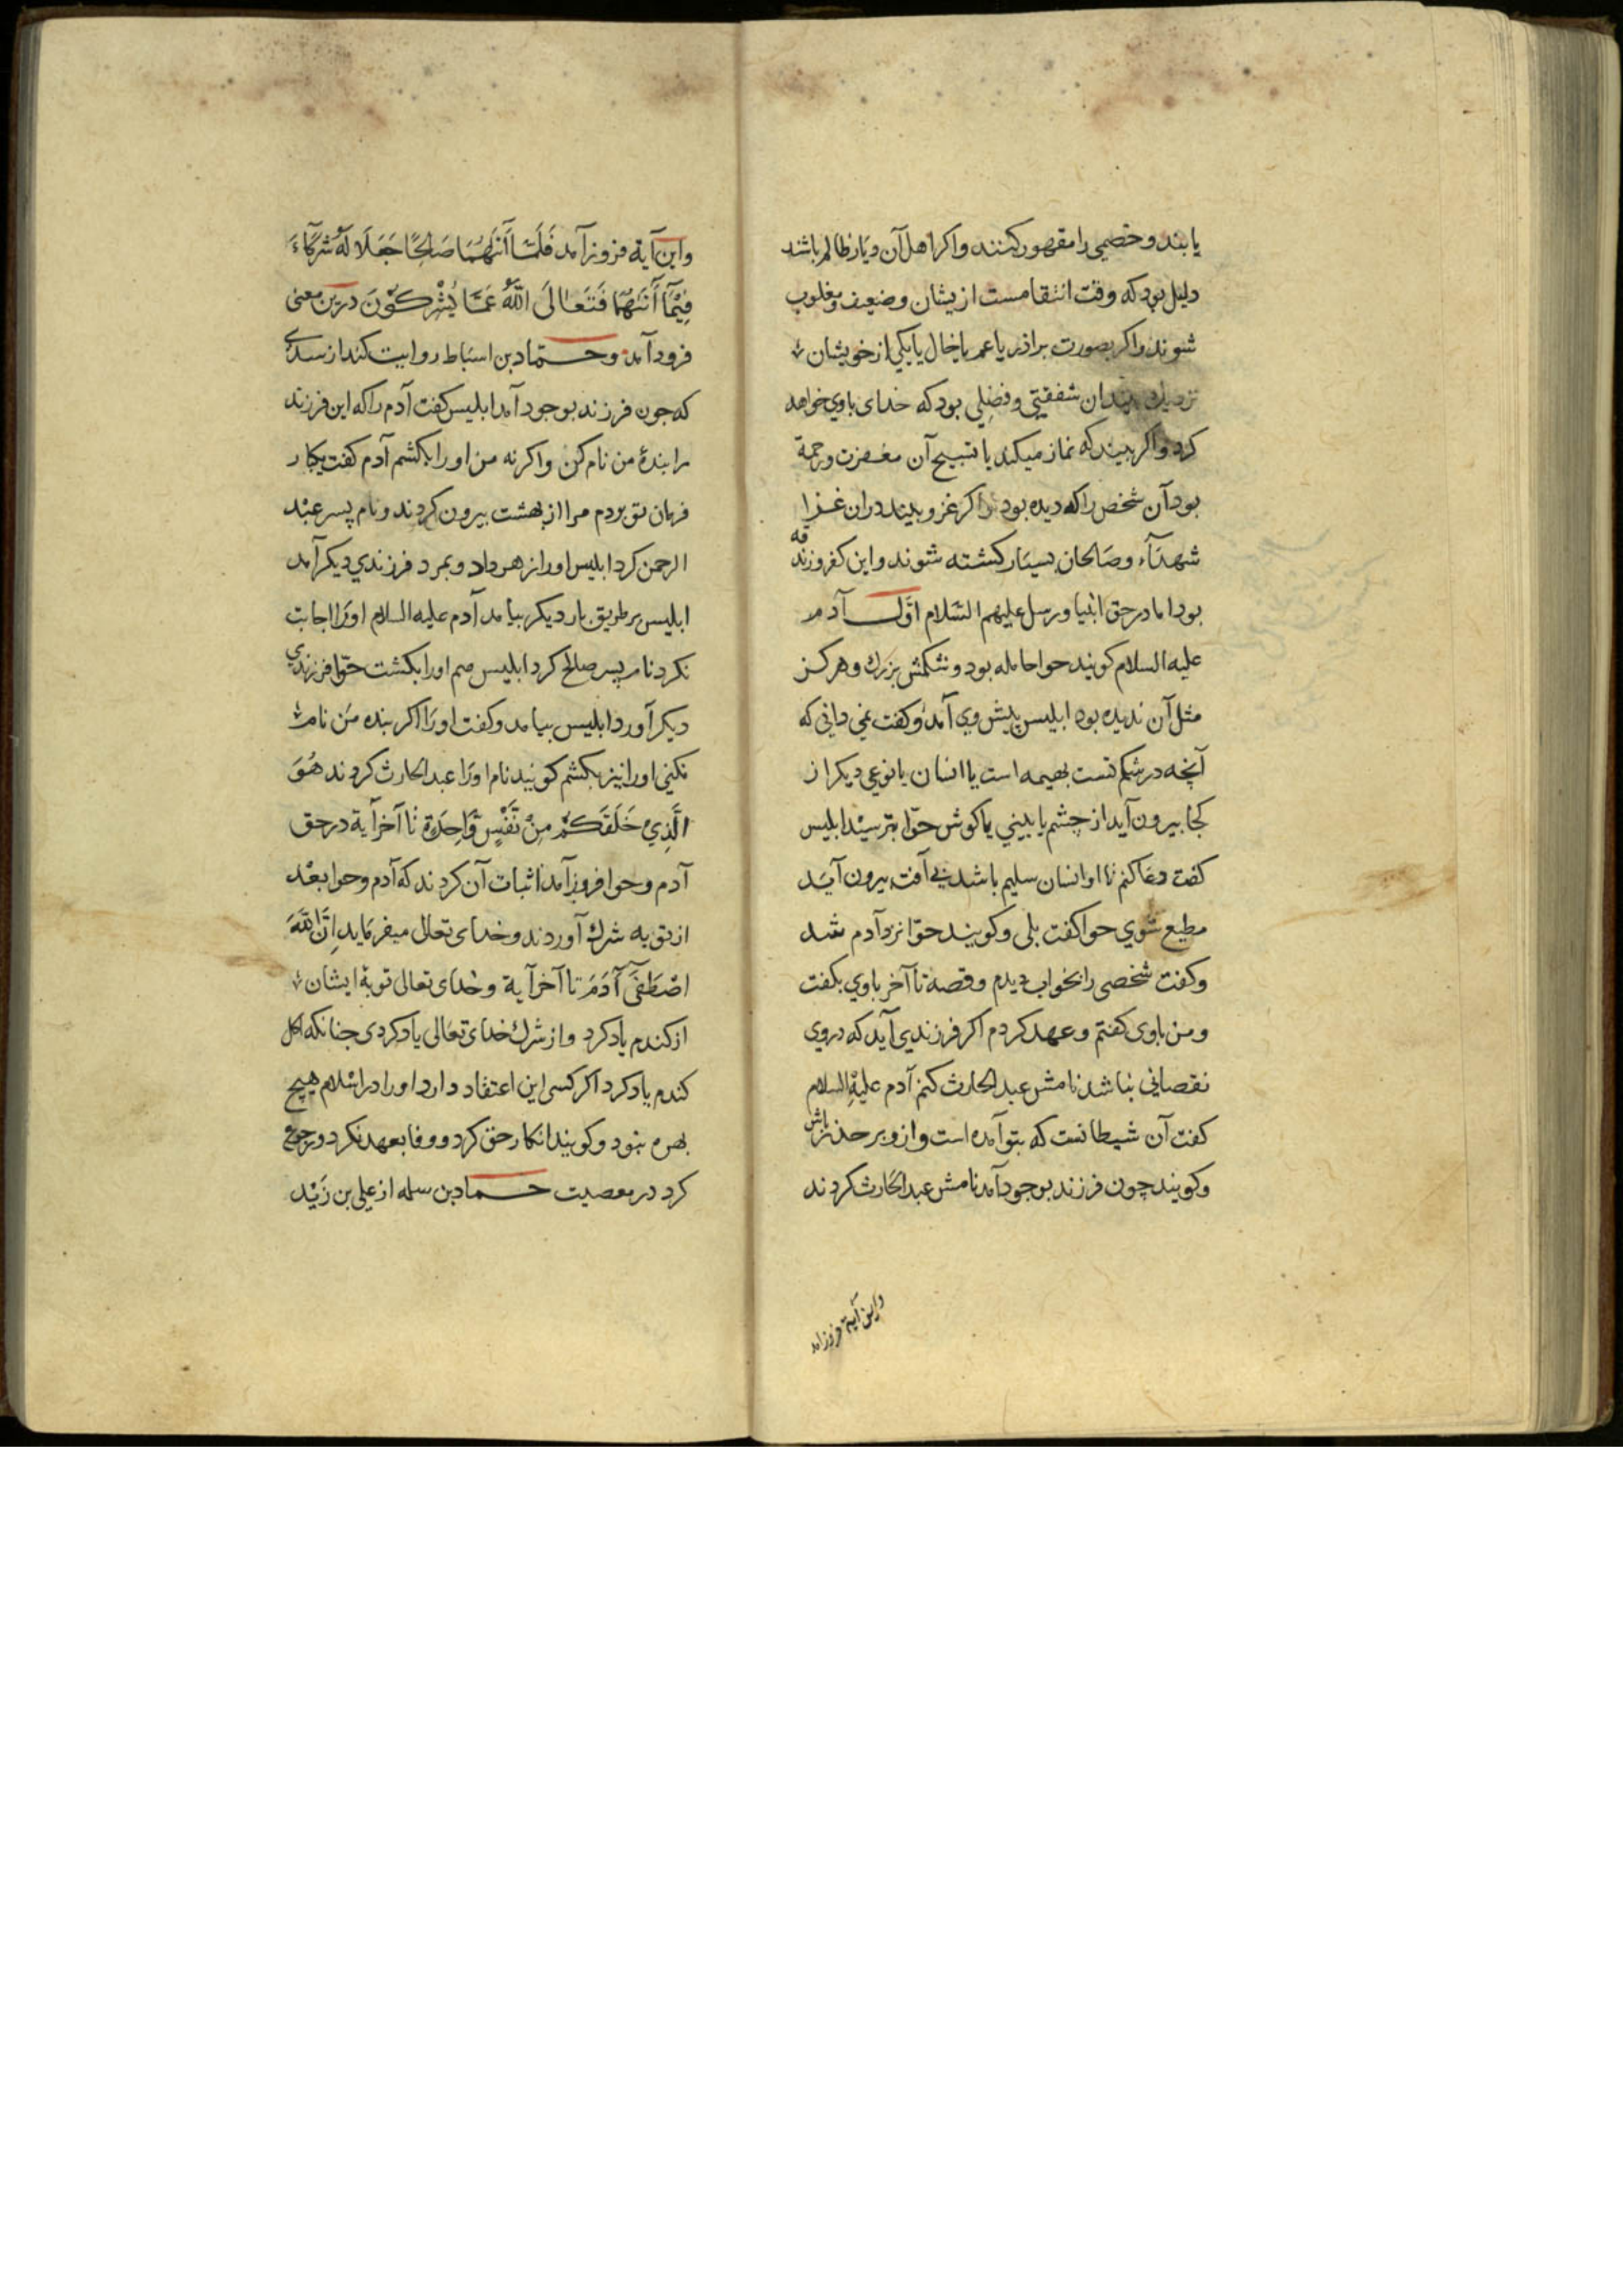 یابند و خصمی را مقهور کنند و اکر اهل آن دیار ظالم باشد
دلیل بود که وقت انتقامست ازیشان و ضعیف و مغلوب
شوند و اکر بصورت براذر یا عم یا خال یا یکی از خویشان
بیند آن شفقتی و فضلی بود که خدای باوی خواهد
کرد و اکر بیند که نماز میکند یا تسبیح آن مغفرت و رحمة
بود آن شخص را که دیده بود و اکر غزو بیند در ان غزا
شهدآء و صالحان بسیار کشته شوند و این کفر و زندقه
بود اما در حق انبیا و رسل علیهم السلام اول آدم
علیه السلام کویند حوا حامله بود و شکمش بزرك و هر کز
مثل آن ندیده بود ابلیس پیش وی آمد و کفت نمی دانی که
آنچه در شکم تست بهیمه است یا انسان یا نوعی دیکر از
کجا بیرون آید از چشم یا بینی یا کوش حوا بترسید ابلیس
کفت دعا کنم تا او انسان سلیم باشد بی آفت بیرون آید
مطیع شوی حوا کفت بلی و کویند حوا نزد آدم شد
و کفت شخصی را بخواب دیدم و قصه تا آخر باوی بکفت
و من باوی کفتم و عهد کردم اکر فرزندی آید که دروی
نقصانی نباشد نامش عبد الحارث کنم آدم علیه السلام
کفت آن شیطانست که بتو آمده است و ازو بر حذر باش
و کویند چون فرزند بوجود آمد نامش عبد الحارث کردند
واین آیة فروزآمد
واین آیة فروزآمد فَلَمَّا أَتَىٰهُمَا صَالِحًا جَعَلَا لَهُ شُرَكَآءَ
فِیْمَآ أَتَىٰهُمَا فَتَعَالَى اللّٰهُ عَمَّا یُشْرِكُوْنَ درین معنی
فرود آمد و حماد بن اسباط روایت کند از سدی
که جون فرزند بوجود آمد ابلیس کفت آدم را که این فرزند
را بندۀ من نام کن و اکر نه من او را بکشم آدم کفت یکبار
فرمان تو بردم مرا از بهشت بیرون کردند و نام پسر عبد
الرحمن کرد ابلیس او را زهر داد و بمرد فرزندی دیکر آمد
ابلیس بر طریق بار دیکر بیامد آدم علیه السلام او را اجابت
نکرد نام پسر صالح کرد ابلیس هم او را بکشت حوا فرزندی
دیکر آورد ابلیس بیامد و کفت او را اکر بنده من نام
نکنی او را نیز بکشم کویند نام او را عبد الحارث کردند هُوَ
الَّذِیْ خَلَقَكُمْ مِنْ نَفْسٍ وَّاحِدَةٍ تا آخر آیة در حق
آدم و حوا فروزآمد اثبات آن کردند که آدم و حوا بعد
از توبه شرك آوردند و خدای تعالی میفرماید اِنَّ اللّٰهَ
اصْطَفَىٰ آدَمَ تا آخر آیة و خدای تعالی توبۀ ایشان
از کندم یاد کرد و از شرك خدای تعالی یاد کردی جنانکه اکل
کندم یاد کرد اکر کسی این اعتقاد دارد او را در اسلام هیچ
بهره نبود و کویند انکار حق کرد و وفا بعهد نکرد و رجوع
کرد در معصیت حماد بن سلمه از علی بن زید